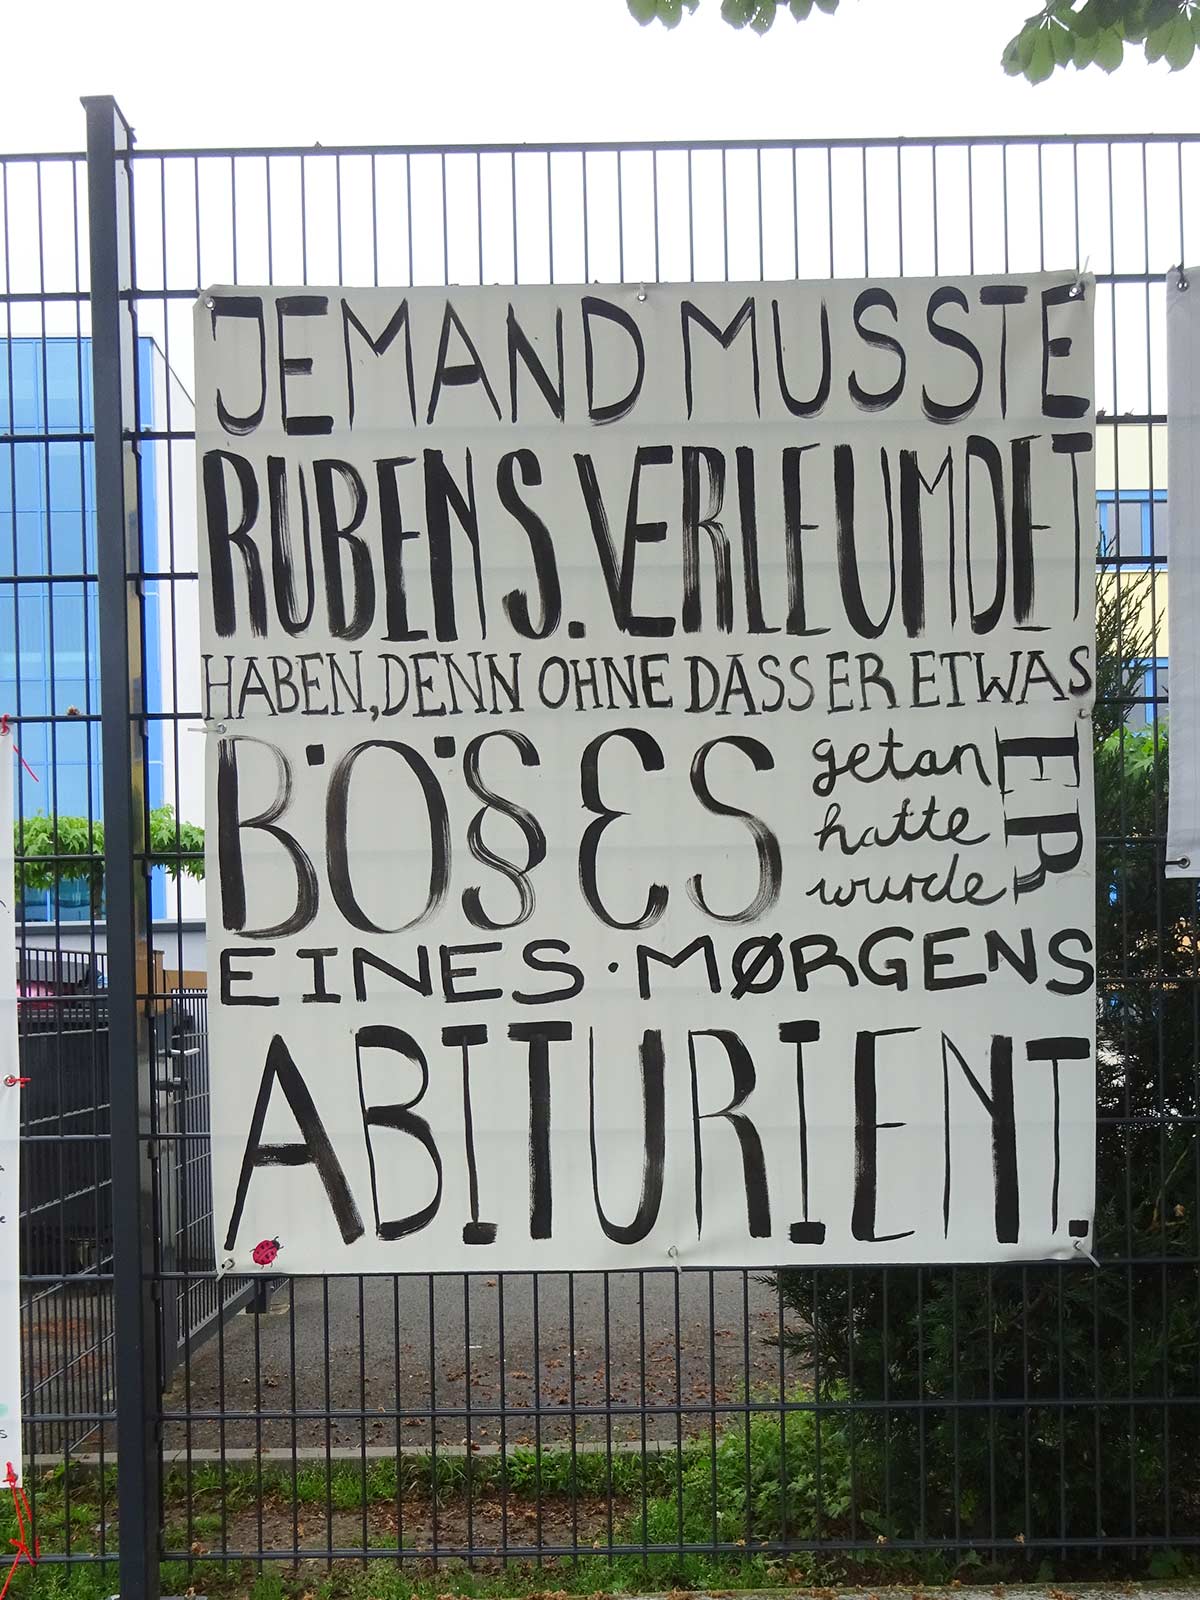 JEMAND MUSSTE
RUBEN S. VERLEUMDET
HABEN, DENN OHNE DASS ER ETWAS
BÖSES getan
hatte
wurde
ER
EINES MØRGENS
ABITURIENT.